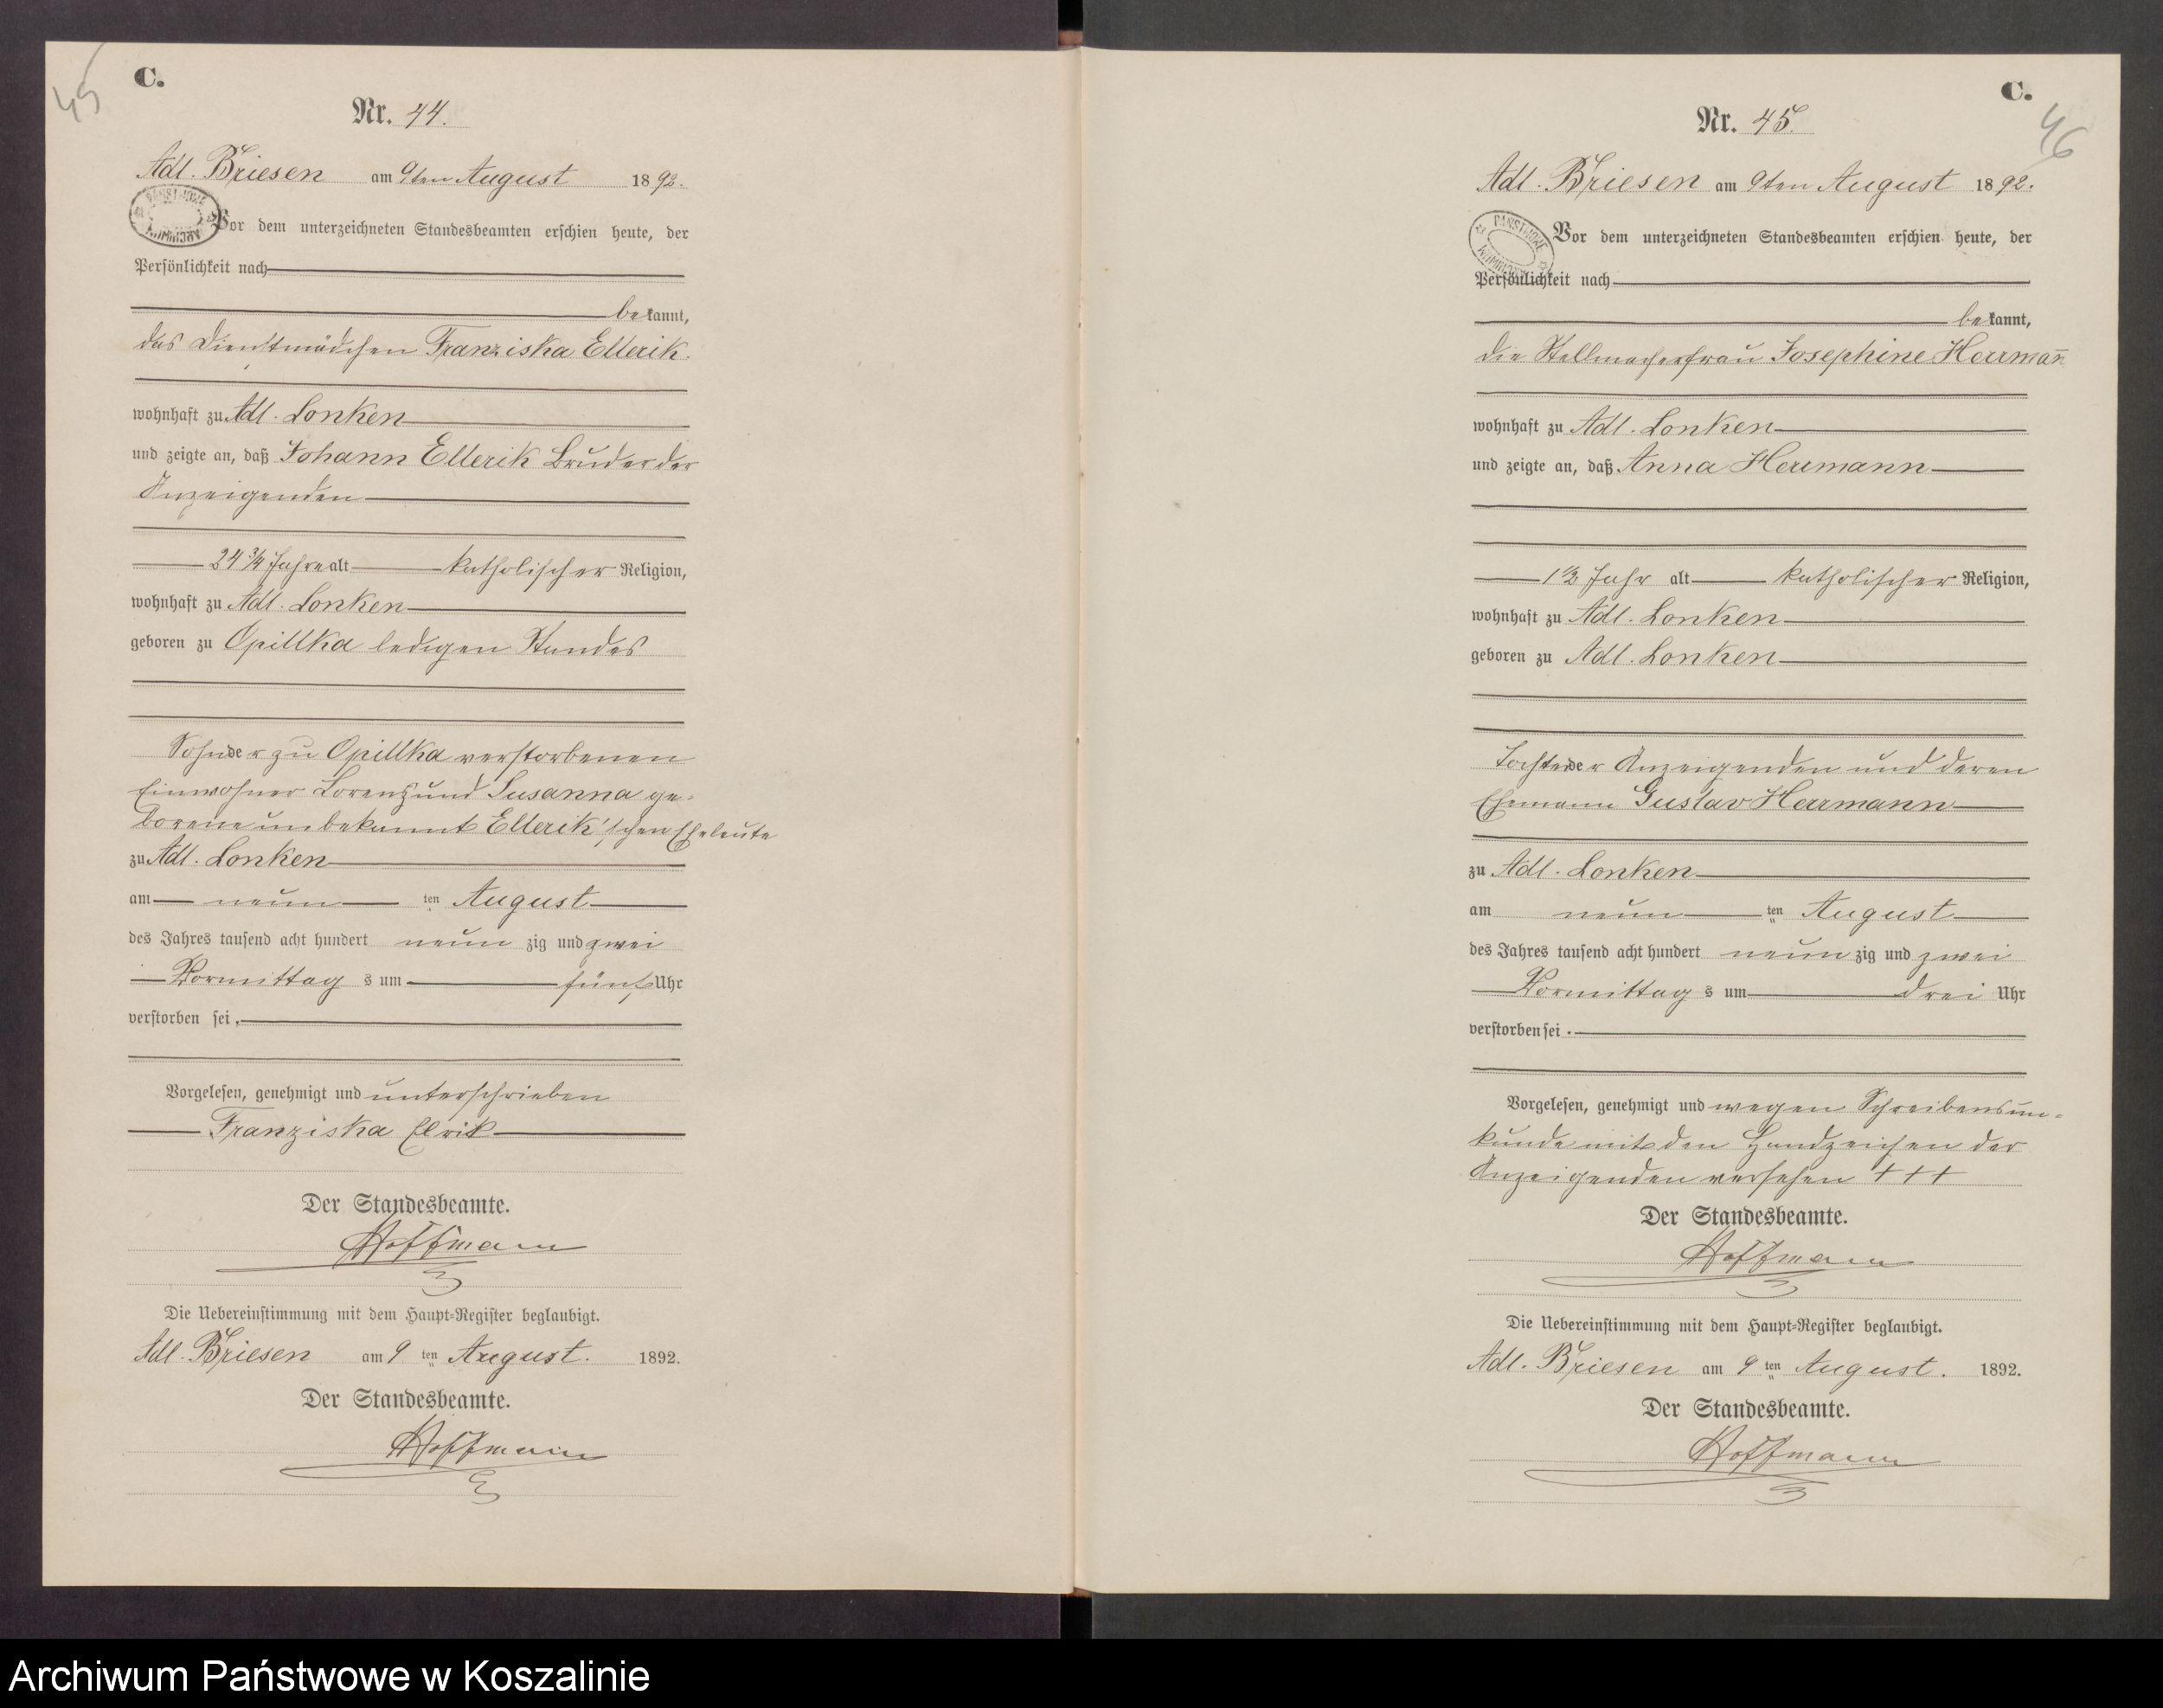 45
C.
Nr. 44.
Adl. Briesen am 9ten August 1892.
Vor dem unterzeichneten Standesbeamten erschien heute, der
Persönlichkeit nach
bekannt,
das Dienstmädchen Franziska Ellerik.
wohnhaft zu Adl. Lonken
und zeigte an, daß Johann Ellerik Bruder der
Anzeigenden
24 3/4 Jahre alt katholischer Religion,
wohnhaft zu Adl. Lonken
geboren zu Opillka ledigen Standes
Sohn der zu Opillka verstorbenen
Einwohner Lorenz und Susanna ge-
borene unbekannt Ellerik'schen Eheleute
zu Adl. Lonken
am neun ten August
des Jahres tausend acht hundert neun zig und zwei
Vormittag s um fünf Uhr
verstorben sei.
Vorgelesen, genehmigt und unterschrieben
Franziska Elrik
Der Standesbeamte.
Hoffmann
Die Uebereinstimmung mit dem Haupt-Register beglaubigt.
Adl. Briesen am 9 ten August. 1892.
Der Standesbeamte.
Hoffmann
C.
46
Nr. 45.
Adl. Briesen am 9ten August 1892.
Vor dem unterzeichneten Standesbeamten erschien heute, der
Persönlichkeit nach
bekannt,
die Stellmacherfrau Josephine Herrman̄
wohnhaft zu Adl. Lonken
und zeigte an, daß Anna Herrmann
1 1/2 Jahr alt katholischer Religion,
wohnhaft zu Adl. Lonken
geboren zu Adl. Lonken
Tochter der Anzeigenden und deren
Ehemann Gustav Herrmann
zu Adl. Lonken
am neun ten August
des Jahres tausend acht hundert neun zig und zwei
Vormittag s um drei Uhr
verstorben sei.
Vorgelesen, genehmigt und wegen Schreibensun-
kunde mit den Handzeichen der
Anzeigenden versehen +++
Der Standesbeamte.
Hoffmann
Die Uebereinstimmung mit dem Haupt-Register beglaubigt.
Adl. Briesen am 9 ten August. 1892.
Der Standesbeamte.
Hoffmann
Archiwum Państwowe w Koszalinie